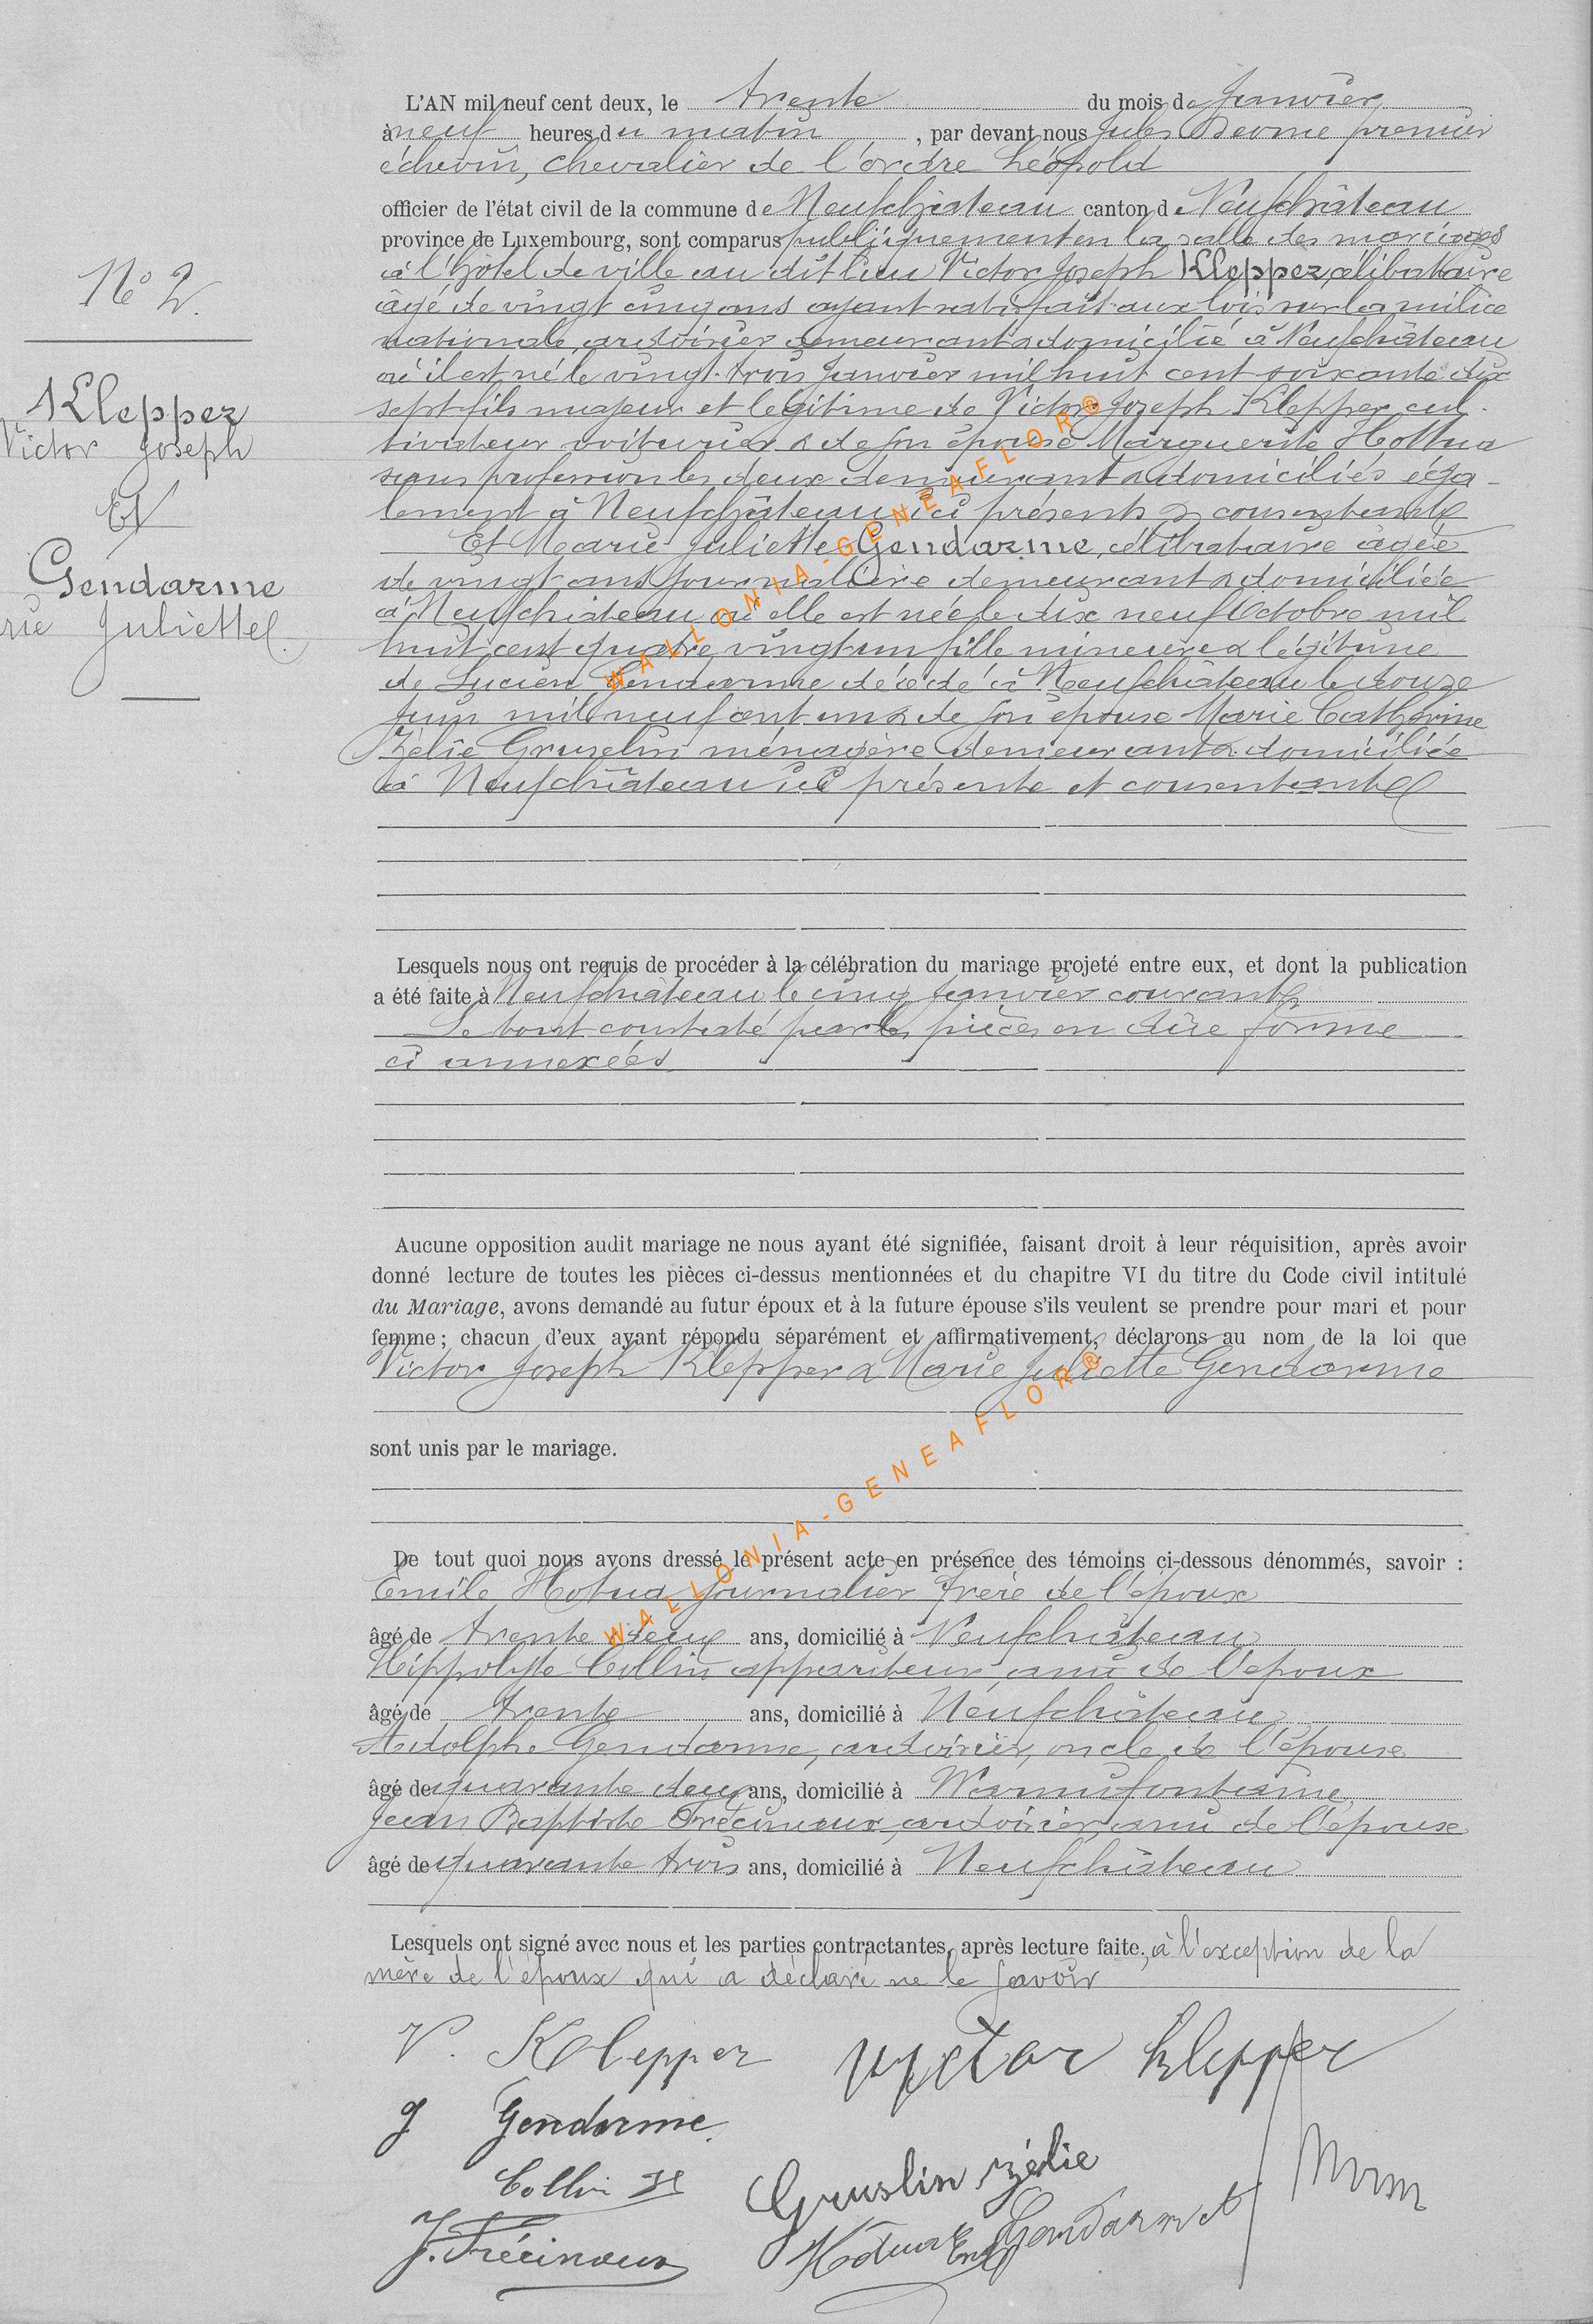 L'AN mil neuf cent deux, le trente du mois de Janvier
à neuf heures du matin, par devant nous Jules Derome premier
échevin, chevalier de l'ordre Léopold
officier de l'état civil de la commune de Neufchâteau canton de Neufchâteau
province de Luxembourg, sont comparus publiquement en la salle des mariages
à l'hôtel de ville au dit lieu Victor Joseph Klepper, célibataire
âgé de vingt cinq ans ayant satisfait aux lois sur la milice
nationale, ardoisier demeurant & domicilié à Neufchâteau
où il est né le vingt-trois Janvier mil huit cent soixante dix
sept fils majeur et légitime de Victor Joseph Klepper cul-
tivateur voiturier & de son épouse Marguerite Hottua
sans profession les deux demeurant & domiciliés éga-
lement à Neufchâteau ici présents & consentants
Et Marie Juliette Gendarme, célibataire âgée
de vingt ans journalière demeurant & domiciliée
à Neufchâteau où elle est née le dix neuf Octobre mil
huit cent quatre vingt un fille mineure & légitime
de Lucien Gendarme décédé à Neufchâteau le douze
Juin mil neuf cent un & de son épouse Marie Catherine
Zélie Gruselin ménagère demeurant & domiciliée
à Neufchâteau ici présente et consentante
N° 2.
Klepper
Victor Joseph
Et
Gendarme
rie Juliette
Lesquels nous ont requis de procéder à la célébration du mariage projeté entre eux, et dont la publication
a été faite à Neufchâteau le cinq Janvier courant
Le tout constaté par les pièces en due forme
ci annexées
Aucune opposition audit mariage ne nous ayant été signifiée, faisant droit à leur réquisition, après avoir
donné lecture de toutes les pièces ci-dessus mentionnées et du chapitre VI du titre du Code civil intitulé
du Mariage, avons demandé au futur époux et à la future épouse s'ils veulent se prendre pour mari et pour
femme; chacun d'eux ayant répondu séparément et affirmativement, déclarons au nom de la loi que
Victor Joseph Klepper & Marie Juliette Gendarme
sont unis par le mariage.
De tout quoi nous avons dressé le présent acte en présence des témoins ci-dessous dénommés, savoir :
Emile Hotua journalier frère de l'époux
âgé de trente deux ans, domicilié à Neufchâteau
Hippolyte Collin appariteur, ami de l'époux
âgé de trente ans, domicilié à Neufchâteau
Adolphe Gendarme, ardoisier, oncle de l'épouse
âgé de quarante deux ans, domicilié à Warmifontaine
Jean Baptiste Frécinaux, ardoisier, ami de l'épouse
âgé de quarante trois ans, domicilié à Neufchâteau
Lesquels ont signé avec nous et les parties contractantes, après lecture faite, à l'exception de la
mère de l'époux qui a déclaré ne le savoir
V. Klepper victor klepper
J Gendarme.
Collin H
Gruslin Zélie
J. Frécinaux
Hotua Em Gendarme A
WALLONIA-GENEAFLOR®
WALLONIA-GENEAFLOR®